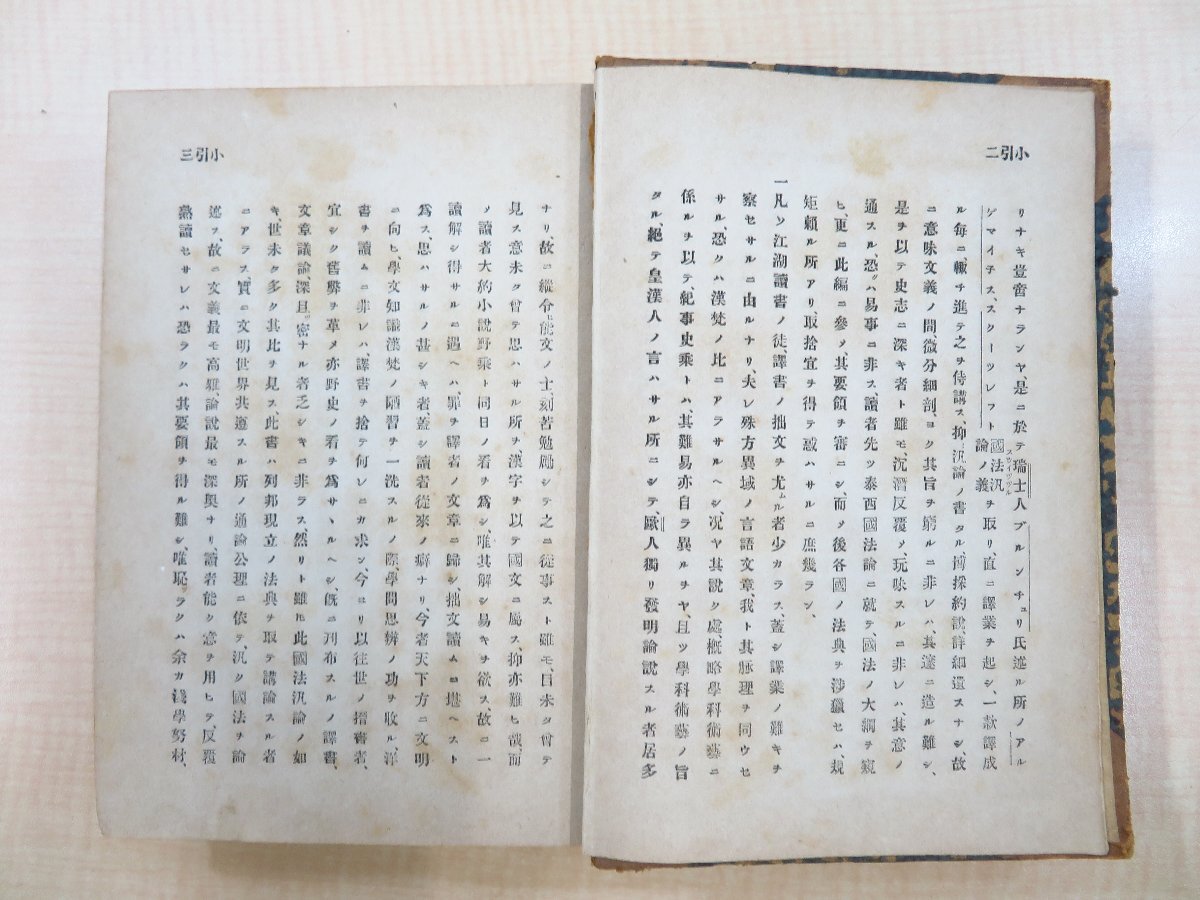 小引二
リナキ豈啻ナラシヤ、是ニ於テ瑞士人ブルンチュリ氏述ル所ノアル
スウイツツル
ゲマイチス、スクーツレフト國法汎論ノ義チ取リ、直ニ譯業チ起シ、一款譯成
ル毎ニ、輒チ進テ之チ侍講ス抑汎論ノ書タル博採約說詳細遺スナシ、故
ニ意味文義ノ間微分細剖ヨク其旨チ窮ルニ非レハ其邃ニ造ル難シ、
是チ以テ史志ニ深キ者ト雖モ、沈潛反覆メ玩味スルニ非レハ其意ノ
通スル、恐クハ易事ニ非ス、讀者先ツ泰西國法論ニ就テ、國法ノ大綱ヲ窺
ヒ、更ニ此編ニ參メ、其要領チ審ニシ、而メ後各國ノ法典チ涉獵セハ、規
矩賴ル所アリ、取捨宜チ得テ惑ハサルニ庶幾ラン、
一凡ソ江湖讀書ノ徒、譯書ノ拙文チ尤ムル者少カラス、蓋シ譯業ノ難キチ
察セサルニ由ルナリ、夫レ殊方異域ノ言語文章、我ト其脈理ヲ同ウセ
サル、恐クハ漢梵ノ比ニアラサルヘシ、况ヤ其說ク處、概略學科術藝ニ
係ルチ以テ、紀事史乘トハ、其難易亦自ラ異ルチヤ、且ツ學科術藝ノ旨
タル、絕テ皇漢人ノ言ハサル所ニシテ、歐人獨リ發明論說スル者居多
小引三
ナリ、故ニ縱令ヒ能文ノ士、刻苦勉勵シテ之ニ從事スト雖モ、目未タ曾テ
見ス意未タ曾テ思ハサル所チ、漢字チ以テ國文ニ屬ス、抑亦難ヒ哉、而
ノ讀者大約小說野乘ト同日ノ看チ爲シ、唯其解シ易キチ欲ス、故ニ一
讀解シ得サルニ遇ヘハ、罪チ譯者ノ文章ニ歸シ、拙文讀ムニ堪ヘスト
爲ス、思ハサルノ甚シキ者、蓋シ讀者從來ノ癖ナリ、今者天下方ニ文明
ニ向ヒ、學文知識漢梵ノ陋習チ一洗スルノ際、學問思辨ノ功ヲ收ル、洋
書チ讀ムニ非レハ、譯書チ捨テ何レニカ求ン、今ニリ以往世ノ摺書者、
宜シク舊弊チ革メ亦野史ノ看チ爲サヽルヘシ、旣ニ刊布スルノ譯書、
文章議論、深且ツ密ナル者乏シキニ非ラス、然リト雖𪜈此國法汎論ノ如
キ、世未タ多ク其比チ見ス、此書ハ列邦現立ノ法典チ取テ講論スル者
ニアラス、實ニ文明世界共遵スル所ノ通論公理ニ依テ、汎ク國法チ論
述ス、故ニ文義最モ高雅、論說最モ深奧ナリ、讀者能ク意チ用ヒテ、反覆
熟讀セサレハ恐ラクハ其要領チ得ル難シ、唯恥ツラクハ余カ淺學努材、